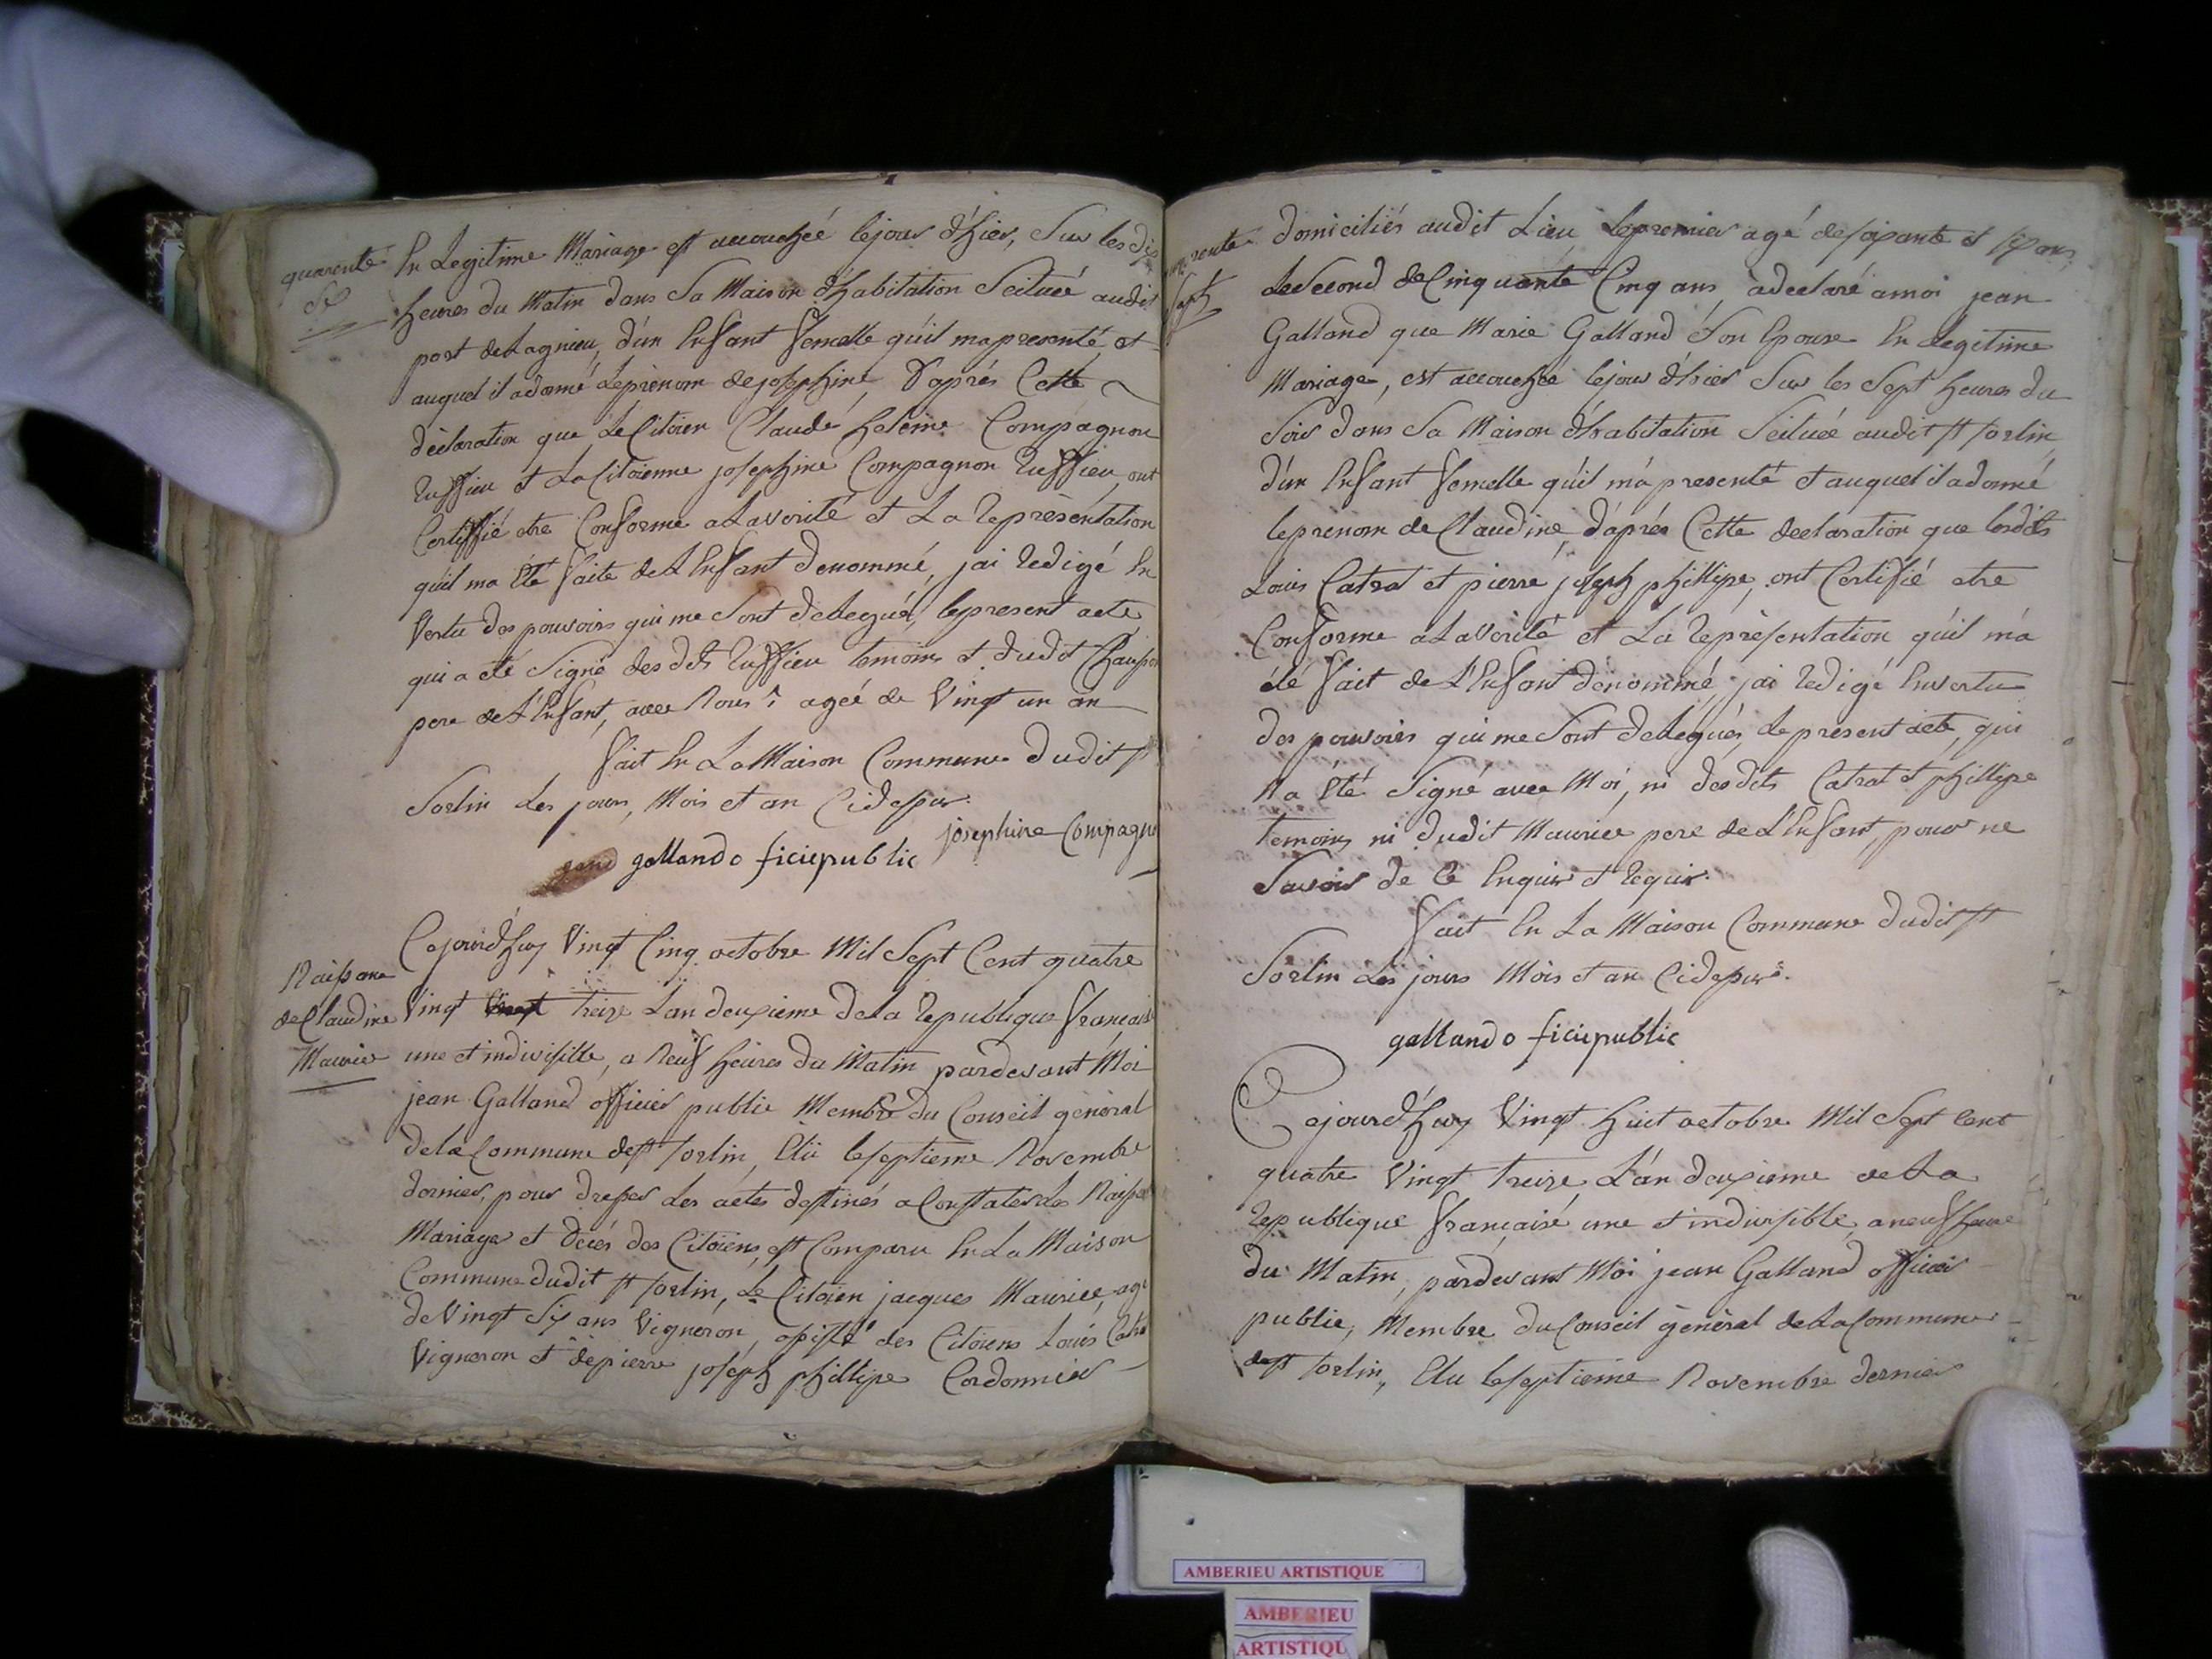 quarente
six
En Legitime Mariage est accouchéé lejour d'hier, Sur les dix
heures du Matin dans Sa Maison d'habitation Scituéé audit
port deLagnieu, d'un Enfant femelle qu'il ma presenté, et
auquel il adonné Leprènom dejosephine, D'aprés Cette
dèclaration que Le Citoien Claude heleine Compagnon
Ruffieu et La Citoienne josephine Compagnon Ruffieu, ont
Certiffié etre Conforme aLaverité et La Représéntation
qu'il ma été faite deLEnfant denommé, jai Redigé En
Vertu des pouvoirs qui me Sont deleguéś, lepresent acte
qui a eté Signé des dts Ruffieu temoins et dudit
pere deL'Enfant, avec Nous agéé de Vingt un an
fait En LaMaison Commune dudit st
Sorlin Les jours, Mois et an Cidessus.
josephine Compagn
gallando ficiepublic
Naissance
deClaudine
Maurice
Cejourd'huy Vingt Cinq octobre Mil Sept Cent quatre
Vingt treize L'an deuxieme dela Republique français
une et indivisible, a Neuf heures du Matin pardevant Moi
jean Galland officier public Membre du Conseil gènéral
delaCommune dest Sorlin, Elu leseptieme Novembre
dernier, pour dresser Les actes destinés a Constater Les Naissa
Mariage et dècés des Citoiens, est Comparu En La Maison
Commune dudit st Sorlin, Le Citoien jacques Maurice, agé
de Vingt Six ans Vigneron, assisté des Citoiens Louis Catra
Vigneron et dèpierre joséph phillipe Cordonnier
quarente
sept
domiciliés audit Lieu, Lepremier agé desoixante et six ans
LeSecond deCinquante Cinq ans, a dèclaré amoi jean
Galland que Marie Galland Son Epouse En Legitime
Mariage, est accouchéé lejour d'hier Sur les Sept heures du
Soir dans Sa Maison d'habitation Scituéé audit st Sorlin
d'un Enfant femelle qu'il m'a presenté et auquel il adonné
leprènom de Claudine, d'aprés Cette declaration que lesdits
Louis Catrat et pierre joseph phillipe, ont Certifié etre
Conforme aLaVerité et La Répresentation qu'il m'a
été fait de L'Enfant dénommé, jai Redigé En vertu
des pouvoirs qui me Sont delegués, le présent acte, qui
Na été Signé avec Moi, ni desdits Catrat et phillipe
temoins, ni dudit Maurice pere deL'Enfant, pour ne
Savoir de Ce Enquis et Requis.
fait En La Maison Commune dudit st
Sorlin Les jours Mois et an Cidessus.
gallando ficiepublic
Cejourd'huy Vingt huit octobre Mil Sept Cent
quatre Vingt treize L'an deuxieme deLa
Republique française une et indivisible, aneuf heure
du Matin, pardevant Moi jean Galland officier
public, Membre duConseil gènéral deLaCommune
dest Sorlin, Elu leseptieme Novembre dernier
AMBERIEU ARTISTIQUE
AMBERIEU
ARTISTIQU